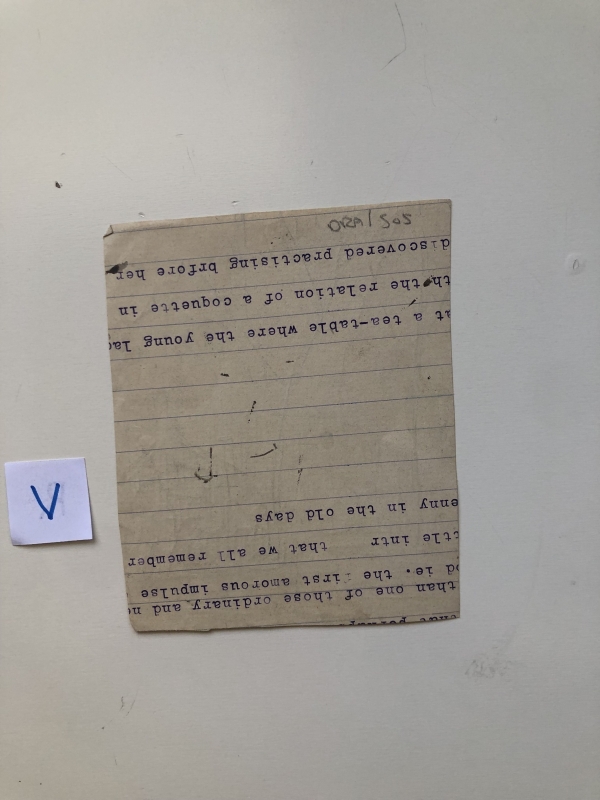 than one of those ordinary and
ie. the first amorous impulse
ttle intr that we all remember
enny in the old days
at a tea-table where the young la
th the relation of a coquette in
discovered practising brfore her
V